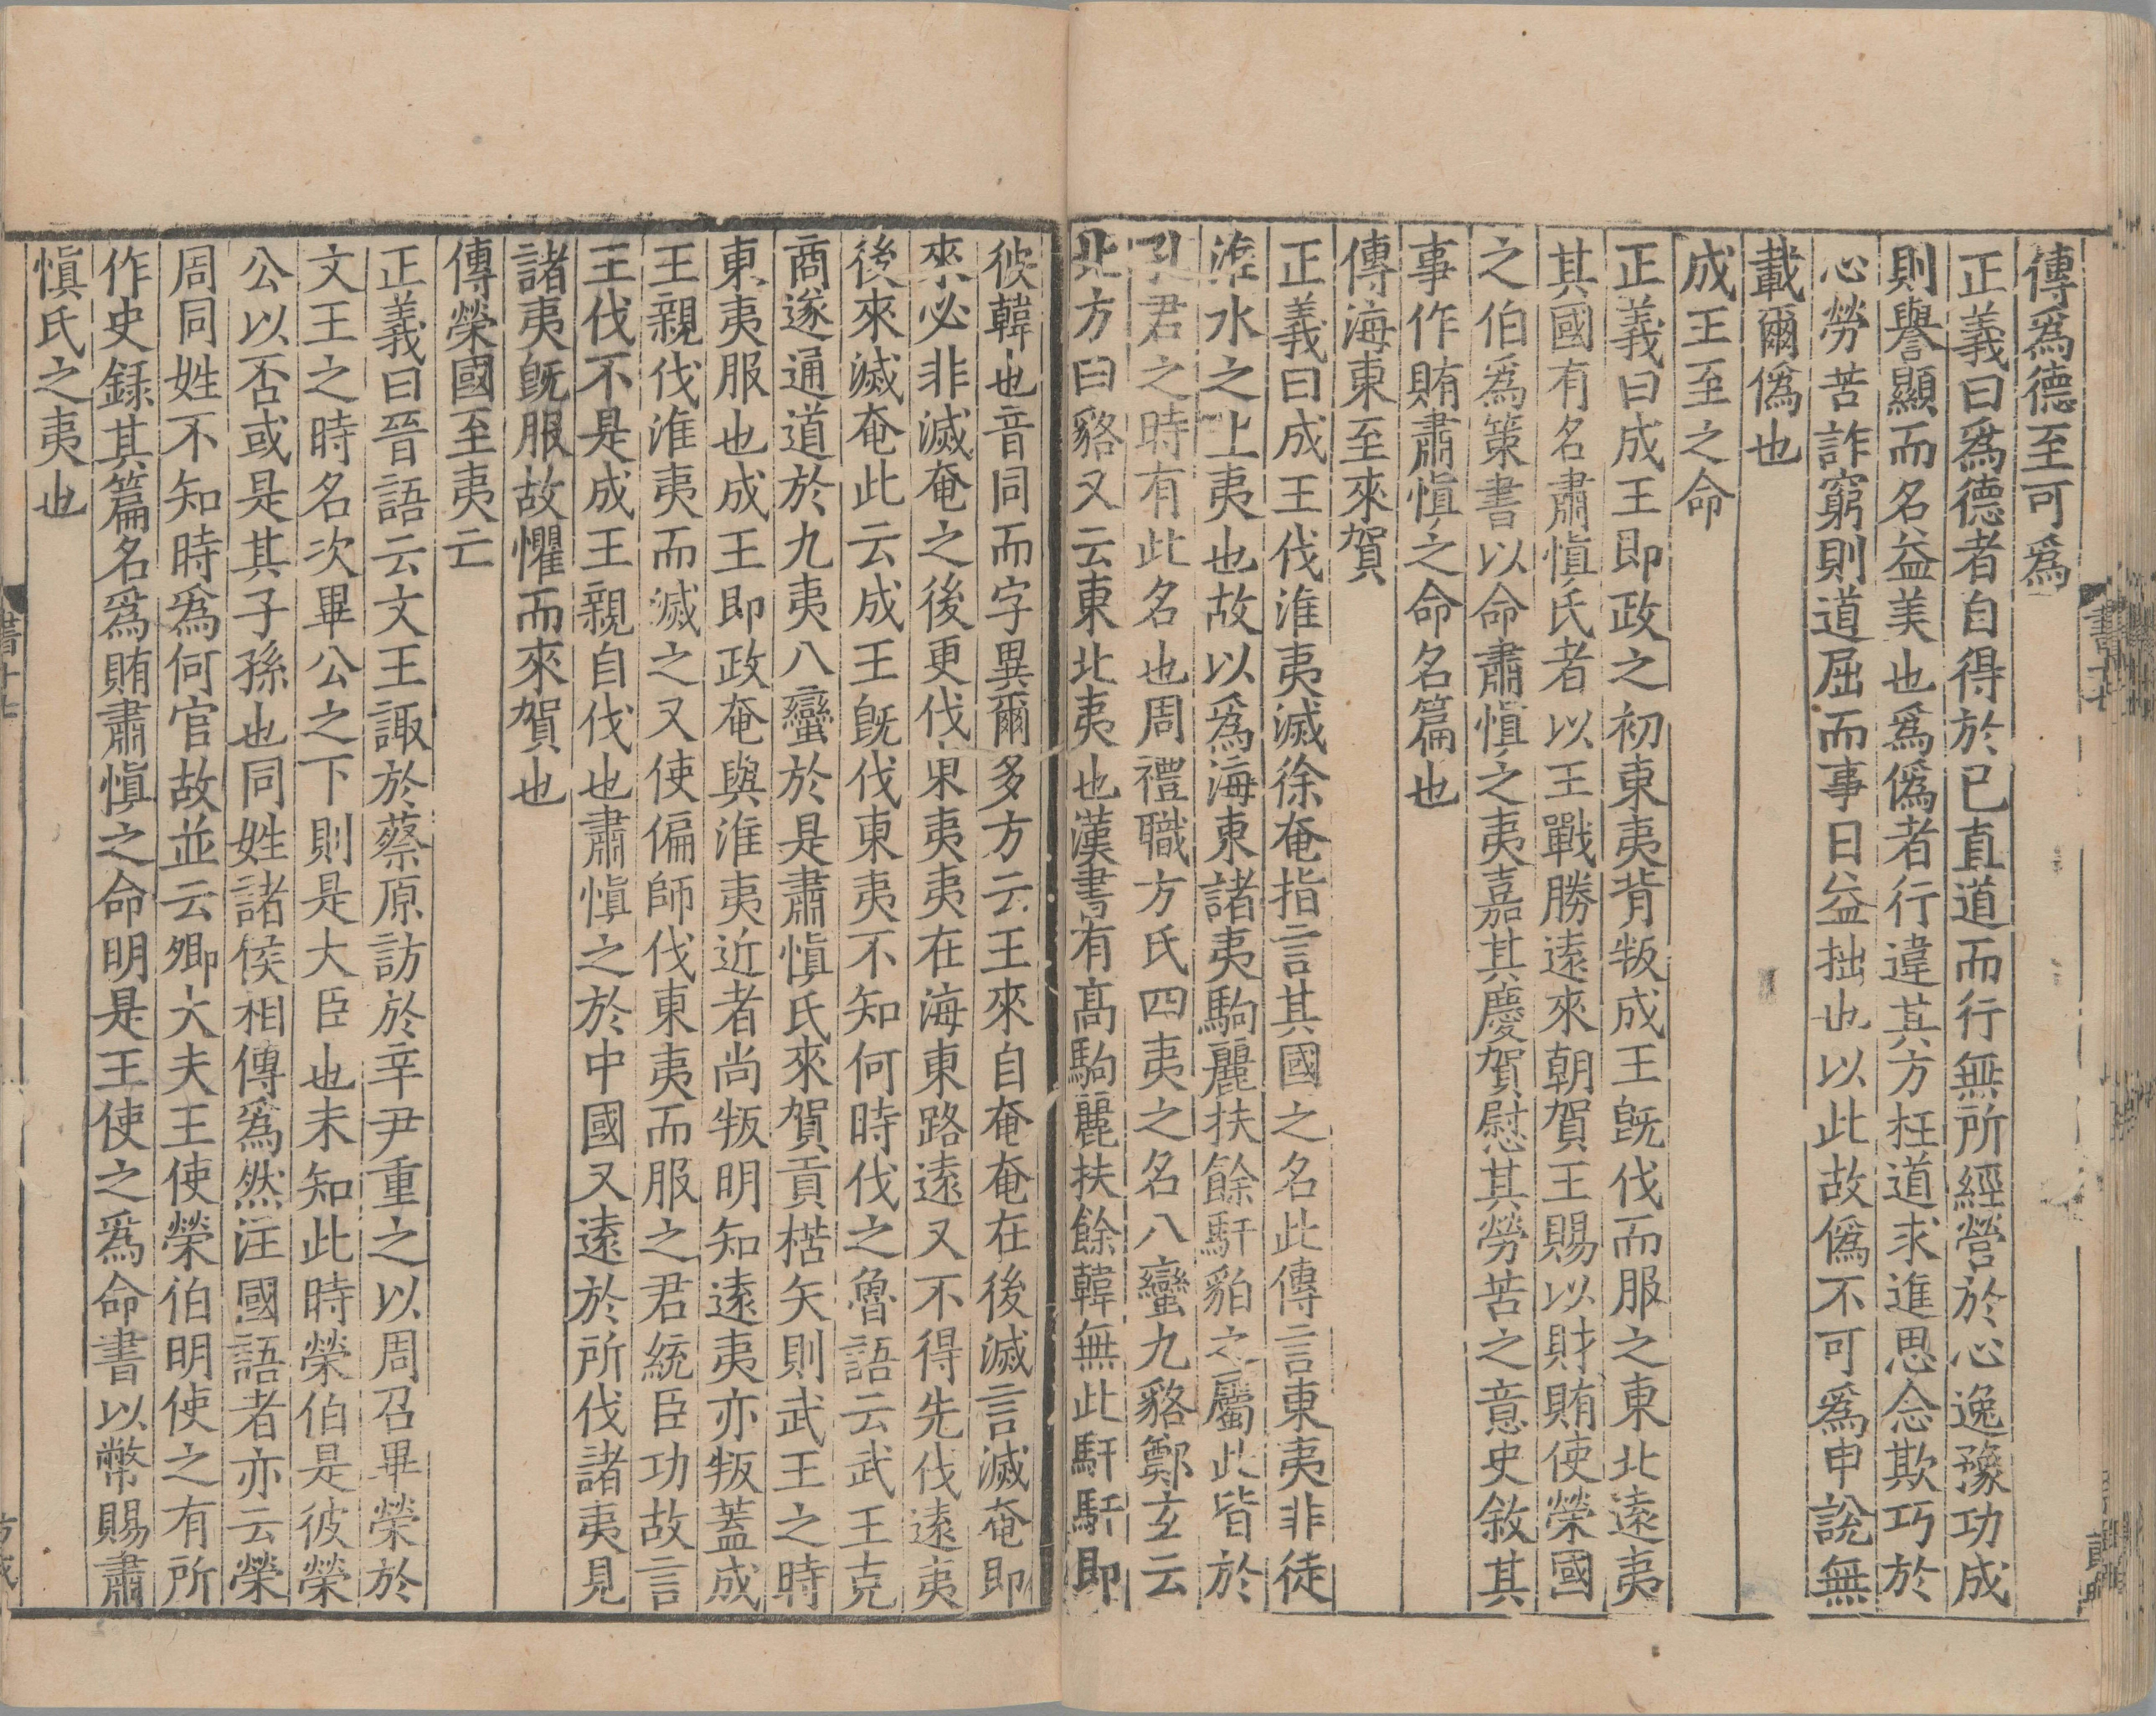 傳爲德至可爲
正義曰爲德者自得於已直道而行無所經營於心逸豫功成
則譽顯而名益美也爲僞者行違其方枉道求進思念欺巧於
心勞苦詐窮則道屈而事日益拙也以此故僞不可爲申說無
載爾僞也
成王至之命
正義曰成王即政之初東夷背叛成王旣伐而服之東北遠夷
其國有名肅愼氏者以王戰勝遠來朝賀王賜以財賄使榮國
之伯爲策書以命肅愼之夷嘉其慶賀慰其勞苦之意史敘其
事作賄肅愼之命名篇也
傳海東至來賀
正義曰成王伐淮夷滅徐奄指言其國之名此傳言東夷非徒
淮水之上夷也故以爲海東諸夷駒麗扶餘馯貊之屬此皆於
孔君之時有此名也周禮職方氏四夷之名八蠻九貉鄭玄云
北方曰貉又云東北夷也漢書有高駒麗扶餘韓無此馯馯即
彼韓也音同而字異爾多方云王來自奄奄在後滅言滅奄即
來必非滅奄之後更伐東夷夷在海東路遠又不得先伐遠夷
後來滅奄此云成王旣伐東夷不知何時伐之魯語云武王克
商遂通道於九夷八蠻於是肅愼氏來賀貢楛矢則武王之時
東夷服也成王即政奄與淮夷近者尚叛明知遠夷亦叛蓋成
王親伐淮夷而滅之又使偏師伐東夷而服之君統臣功故言
王伐不是成王親自伐也肅愼之於中國又遠於所伐諸夷見
諸夷旣服故懼而來賀也
傳榮國至夷亡
正義曰晉語云文王諏於蔡原訪於辛尹重之以周召畢榮於
文王之時名次畢公之下則是大臣也未知此時榮伯是彼榮
公以否或是其子孫也同姓諸侯相傳爲然注國語者亦云榮
周同姓不知時爲何官故並云卿大夫王使榮伯明使之有所
作史録其篇名爲賄肅愼之命明是王使之爲命書以幣賜肅
愼氏之夷也
書十七